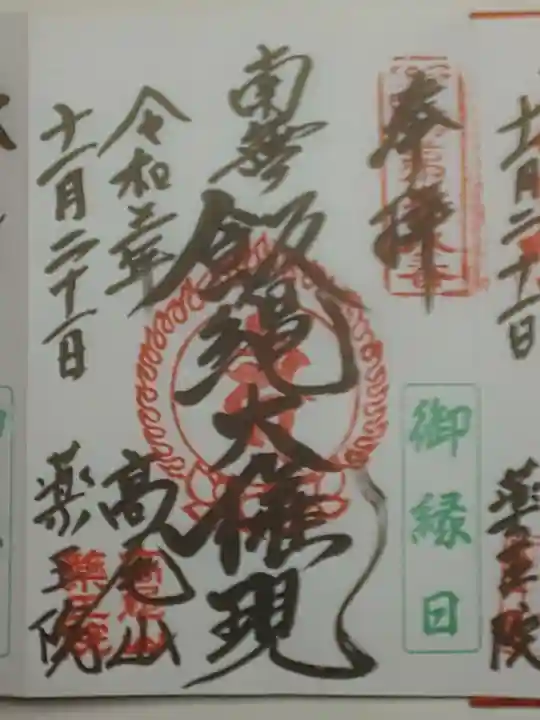 奉拝
御縁日
南無
飯縄大権現
令和三年
十一月二十一日
高尾山
薬王院
十一月二十一日
薬王院